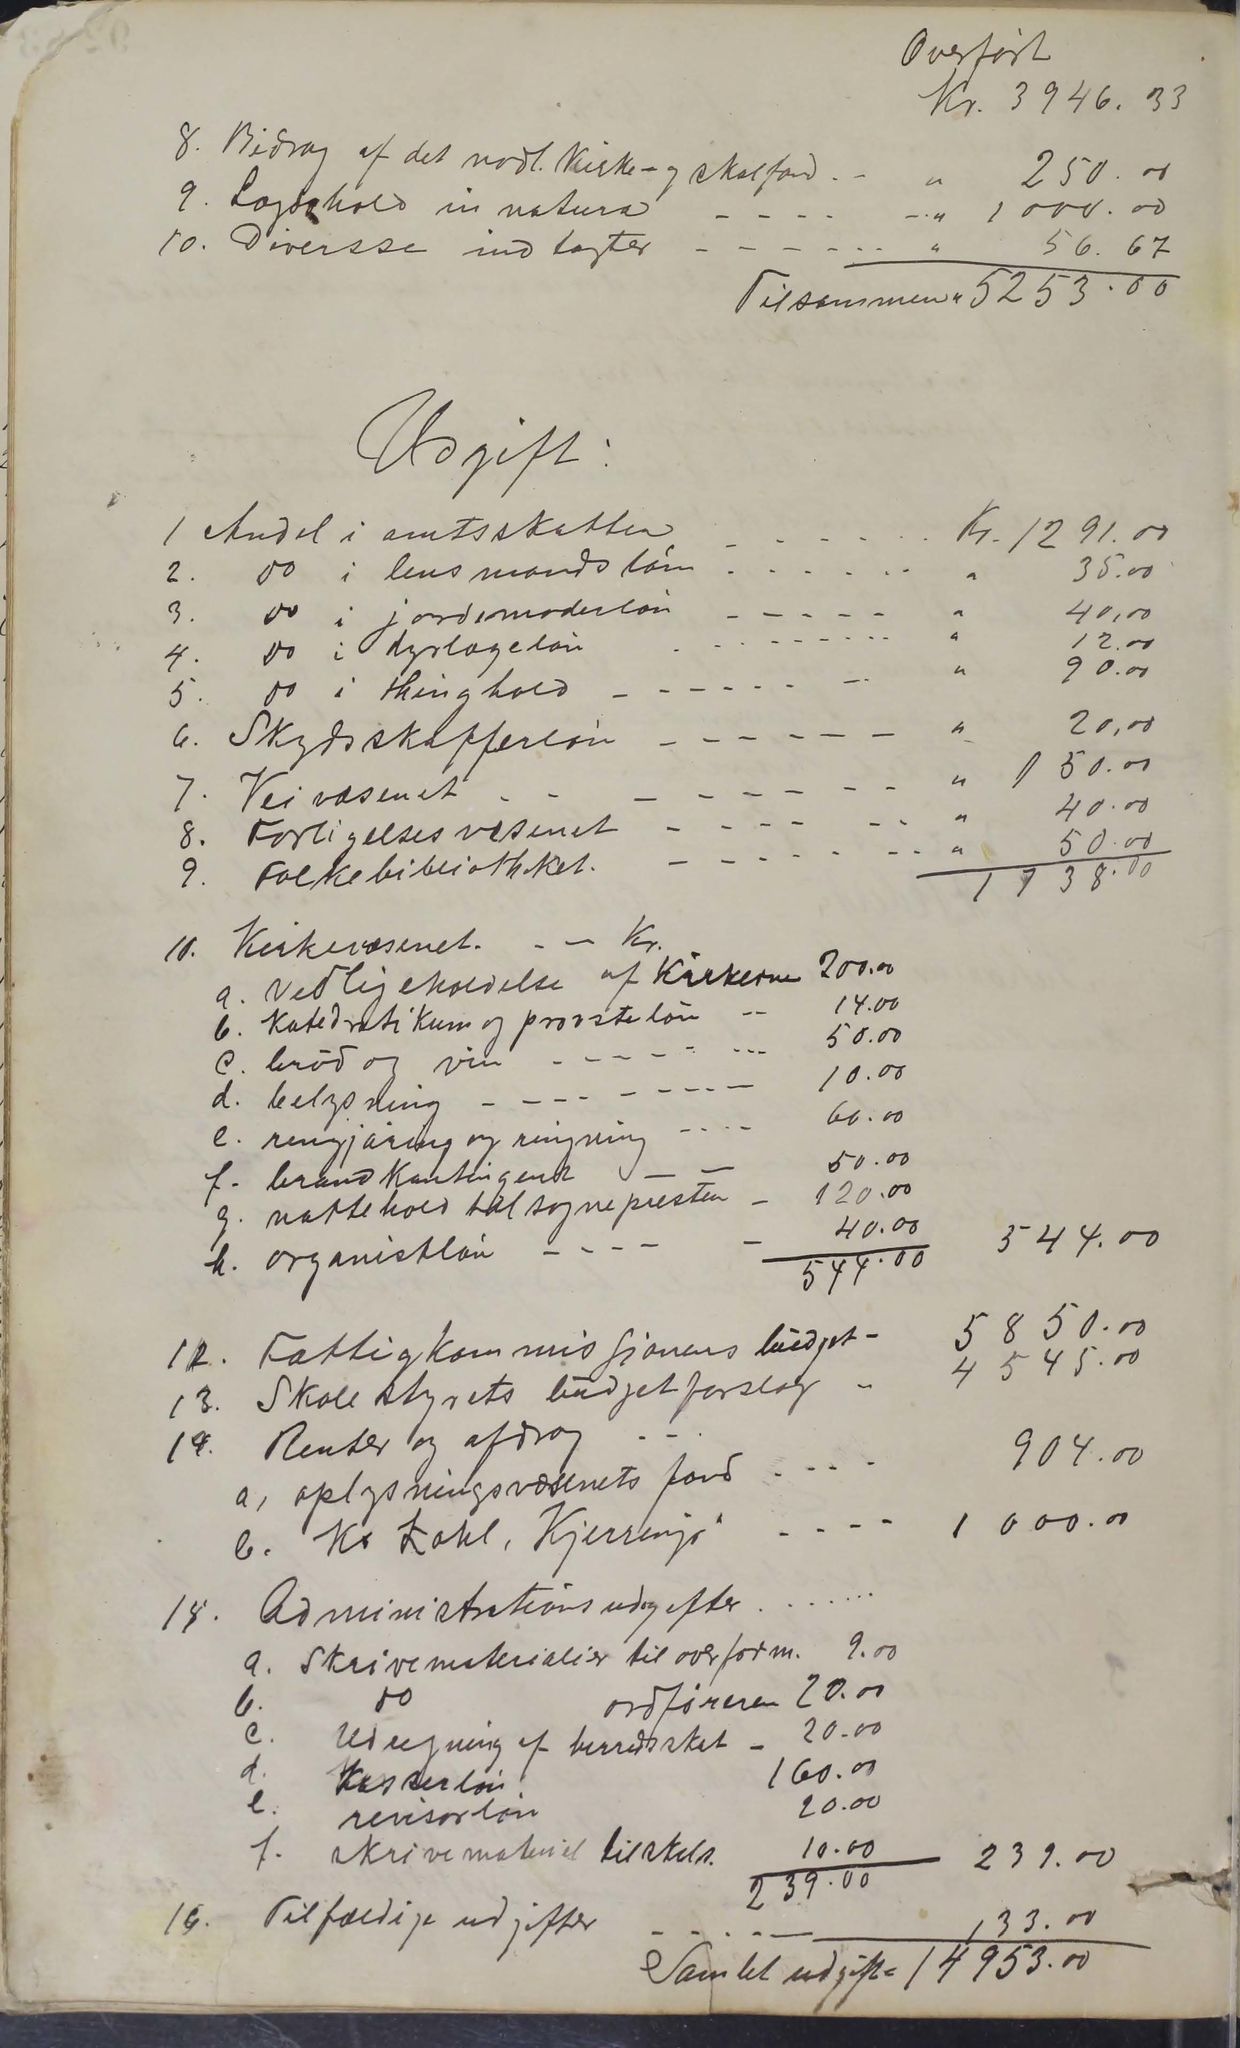 Overført
Kr. 3946.33
8. Bidrag af det nordl. Kirke- og skolefond - - " 250.00
9. Lægdehold in natura - - - - - - " 1000.00
10. Diversse indtægter - - - - - - " 56.67
Tilsammen " 5253.00
Udgift:
1 Andel i amtsskatten - - - - - - Kr. 1291.00
2. do i lensmandsløn - - - - - - " 35.00
3. do i jordemoderløn - - - - - " 40,00
4. do i dyrlægeløn - - - - - - " 12.00
5. do i thinghold - - - - - - - " 90.00
6. Skydsskafferløn - - - - - - " 20,00
7. Veivæsenet - - - - - - - - " 150.00
8. Forligelsesvæsenet - - - - - - " 40.00
9. Folkebibliotheket. - - - - - - - " 50.00
1738.00
10. Kirkevæsenet. - - Kr.
a. Vedligeholdelse af Kirkerne 200.00
b. Katedratikum og provsteløn - 14.00
c. brød og vin - - - - - - 50.00
d. belysning - - - - - - - 10.00
e. rengjøring og ringning - - - - 60.00
f. brandkontingent - - 50.00
g. nattehold til sognepresten - 120.00
h. organistløn - - - - - 40.00
544.00 544.00
12. Fattigkommissjonens budget - 5850.00
13. Skolestyrets budgetforslag - 4545.00
14. Renter og afdrag - - -
a, oplysningsvæsenets fond - - - - 904.00
b. K. Zahl, Kjerringø - - - - 1000.00
15. Administrationsudgifter . . . . . .
a. Skrivematerialier til overform. 9.00
b. do ordføreren 20.00
c. Udregning af herredsskat - 20.00
d. Kasserløn 160.00
e. revisorløn 20.00
f. skrivemateriel til skols. 10.00
239.00 239.00
16. Tilfældige udgifter - - - - - 133.00
Samlet udgift = 14953.00